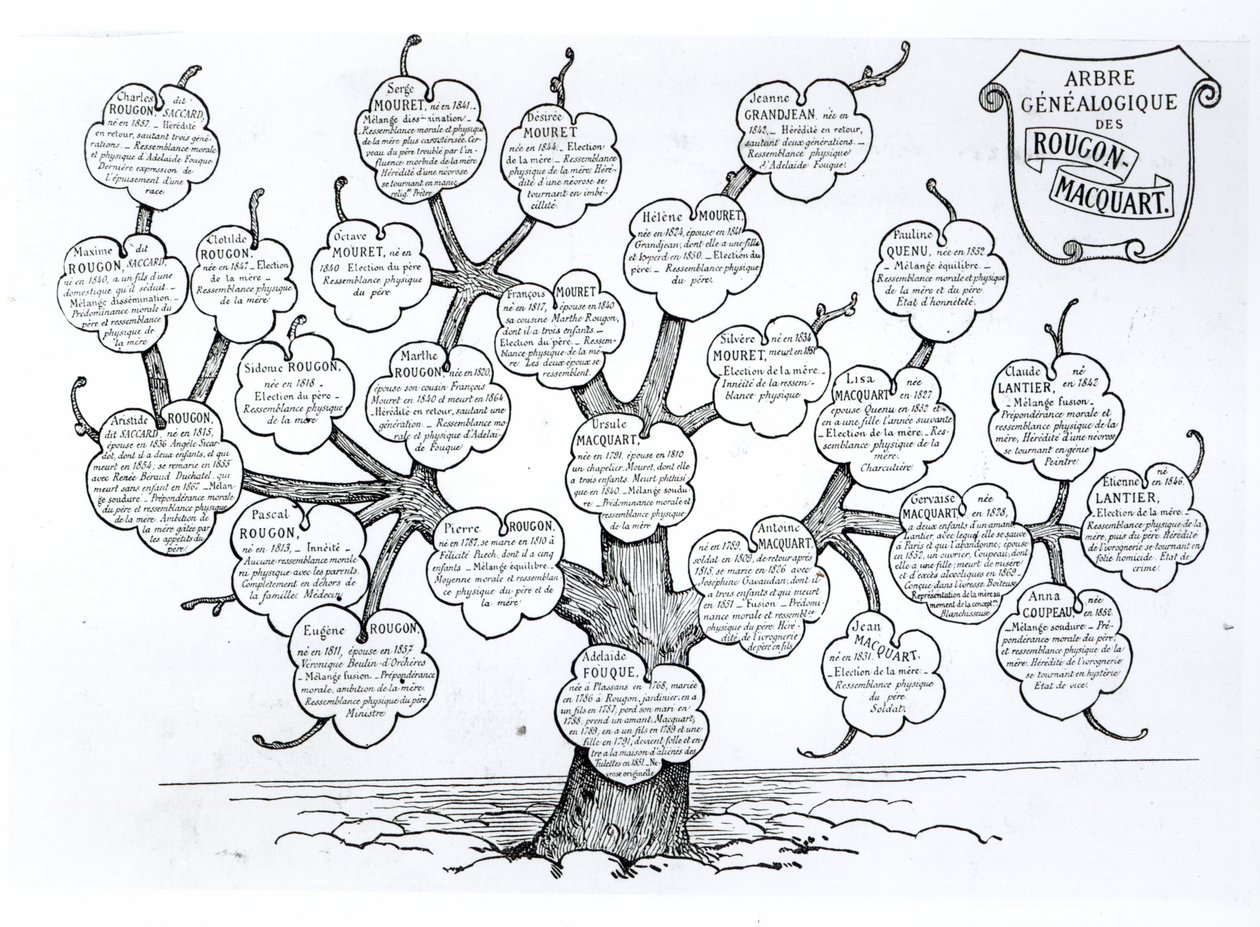 ARBRE
GÉNÉALOGIQUE
DES
ROUGON-
MACQUART.
Charles dit
ROUGON, SACCARD,
né en 1857. _ Hérédité
en retour, sautant trois géné-
rations. _ Ressemblance morale
et physique d'Adelaide Fouque.
Dernière expression de
l'épuisement d'une
race.
Serge
MOURET, né en 1841._
Mélange dissémination.
_Ressemblance morale et physique
de la mère plus caractérisée. Cer-
veau du père troublé par l'in-
fluence morbide de la mère
Hérédité d'une névrose
se tournant en mysti-
Prêtre
Désirée
MOURET
née en 1844._ Election
de la mère. _ Ressemblance
physique de la mère. Héré-
dité d'une névrose se
tournant en imbé-
cillité.
Jeanne
GRANDJEAN, née en
1842._ Hérédité en retour,
sautant deux générations. _
Ressemblance physique
d'Adelaide Fouque.
Maxime dit
ROUGON, SACCARD,
né en 1840, a un fils d'une
domestique qu'il séduit. _
Mélange dissémination. _
Prédominance morale du
père et ressemblance
physique de
la mère
Clotilde
ROUGON.
née en 1847._ Election
de la mère. _
Ressemblance physique
de la mère.
Octave
MOURET, né en
1840 Election du père
Ressemblance physique
du père
François MOURET
né en 1817, épouse en 1840
sa cousine Marthe Rougon,
dont il a trois enfants. _
Election du père. _ Ressem-
blance physique de la mè-
re. Les deux époux se
ressemblent.
Hélène MOURET,
née en 1824, épouse en 1841
Grandjean, dont elle a une fille
et le perd en 1850. _ Election du
père. _ Ressemblance physique
du père.
Pauline
QUENU, née en 1852
_ Mélange équilibre. _
Ressemblance morale et physique
de la mère et du père.
Etat d'honnêteté.
Sidonie ROUGON,
née en 1818 _
Election du père _
Ressemblance physique
de la mère
Marthe
ROUGON, née en 1820,
épouse son cousin François
Mouret en 1840 et meurt en 1864
_ Hérédité en retour, sautant une
génération. _ Ressemblance mo-
rale et physique d'Adelaï-
de Fouque
Silvère né en 1834
MOURET, meurt en 1851
_ Election de la mère. _
Innéité de la ressem-
blance physique
Lisa née
MACQUART en 1827
épouse Quenu en 1852 et
en a une fille l'année suivante
_ Election de la mère. _ Res-
semblance physique de la
mère.
Charcutière
Claude né
LANTIER, en 1842
_ Mélange fusion. _
Prépondérance morale et
ressemblance physique de la
mère, Hérédité d'une névrose
se tournant en génie
Peintre
Aristide ROUGON,
dit SACCARD, né en 1815,
épouse en 1836 Angèle Sicar-
dot, dont il a deux enfants, et qui
meurt en 1854; se remarie en 1855
avec Renée Béraud Duchatel qui
meurt sans enfant en 1867. _ Mélan-
ge soudure _ Prépondérance morale
du père et ressemblance physique
de la mère. Ambition de
la mère gâtée par
les appétits du
père
Ursule
MACQUART,
née en 1791, épouse en 1810
un chapelier. Mouret, dont elle
a trois enfants. Meurt phthisi
que en 1840. _ Mélange soudu
re _ Prédominance morale et
ressemblance physique
de la mère
Etienne né
LANTIER, en 1846.
_ Election de la
mère, puis du père. Hérédité
de l'ivrognerie se tournant en
folie homicide. Etat de
crime.
Gervaise née
MACQUART en 1828,
a deux enfants d'un amant
Lantier avec lequel elle se sauve
à Paris et qui l'abandonne; épouse
en 1852, un ouvrier, Coupeau, dont
elle a une fille; meurt de misère
et d'excès alcooliques en 1869_
Conçue dans l'ivresse. Boiteuse
Représentation de la mère au
moment de la concept.ⁿ
Blanchisseuse
Pascal
ROUGON,
né en 1813, _ Innéité _
Aucune ressemblance morale
ni physique avec les parents.
Complètement en dehors de
la famille. Médecin
Pierre ROUGON,
né en 1787, se marie en 1810 à
Félicité Puech, dont il a cinq
enfants _ Mélange équilibre. _
Moyenne morale et ressemblan
ce physique du père et de
la mère
Antoine
né en 1789, MACQUART
soldat en 1809, de retour après
1815, se marie en 1826 avec
Joséphine Gavaudan, dont il
a trois enfants et qui meurt
en 1851 _ Fusion _ Prédomi-
nance morale et ressemblance
physique du père. Héré-
dité de l'ivrognerie
de père en fils.
Anna née
COUPEAU en 1852.
_ Mélange soudure _ Pré-
pondérance morale du père,
et ressemblance physique de la
mère. Hérédité de l'ivrognerie
se tournant en hystérie
Etat de vice.
Eugène ROUGON,
né en 1811, épouse en 1857
Véronique Beulin-d'Orchères
_ Mélange fusion. _ Prépondérance
morale, ambition de la mère.
Ressemblance physique du père
Ministre
Jean
MACQUART,
né en 1831.
_ Election de la mère _
Ressemblance physique
du père
Soldat
Adelaide
FOUQUE,
née à Plassans en 1768, mariée
en 1786 à Rougon, jardinier, en a
un fils en 1787, perd son mari en
1788, prend un amant, Macquart,
en 1789, en a un fils en 1789 et une
fille en 1791, devient folle et en-
tre à la maison d'aliénés des
Tulettes en 1851. _ Né-
vrose originelle.